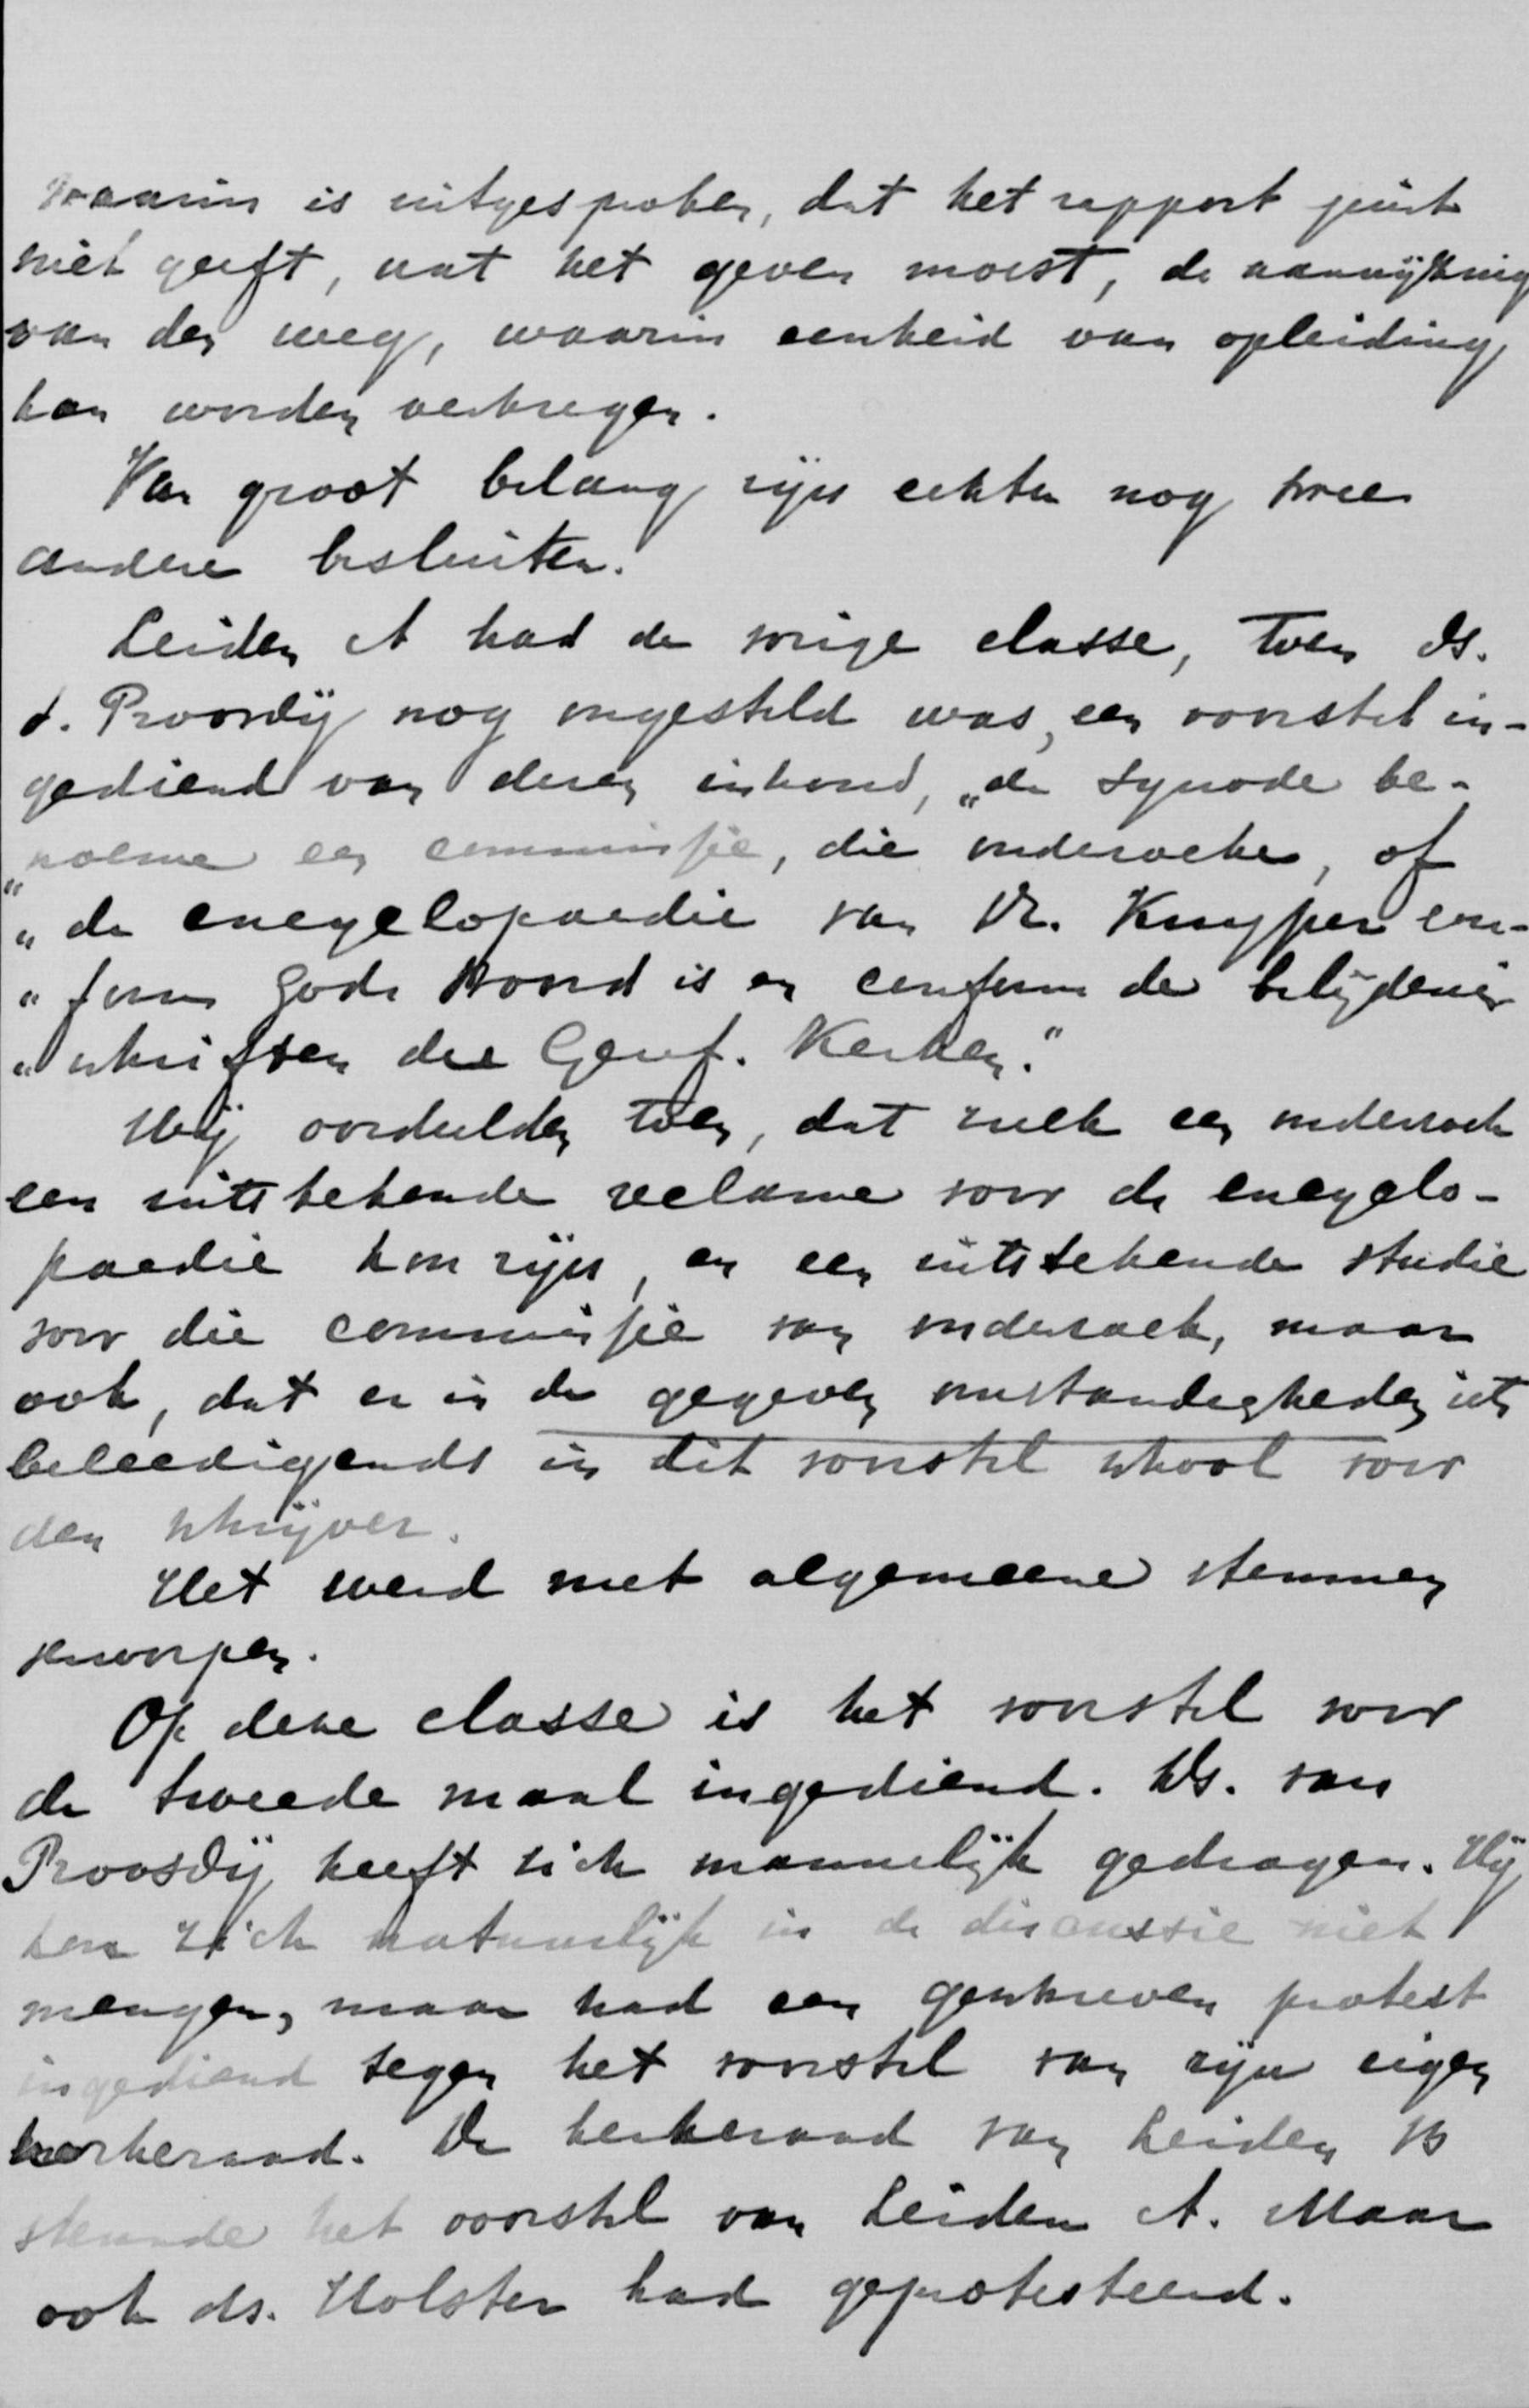 waarin is uitgesproken, dat het rapport juist
niet geeft, wat het geven moest, de aanwijzing
van den weg, waarin eenheid van opleiding
kan worden verkregen.
Van groot belang zijn echter nog twee
andere besluiten.
Leiden A had de vorige classe, toen ds.
v. Proosdij nog ongesteld was, een voorstel in-
gediend van dezen inhoud, „de Synode be-
„noeme een commissie, die onderzoeke, of
„de encyclopaedie van Dr. Kuyper con-
„form Gods Woord is en conform de belijdenis
„schriften der Geref. Kerken."
Wij oordeelden toen, dat zulk een onderzoek
een uitstekende reclame voor de encyclo-
paedie kon zijn, en een uitstekende studie
voor die commissie van onderzoek, maar
ook, dat er in de gegeven omstandigheden iets
beleedigends in dit voorstel school voor
den schrijver.
Het werd met algemeene stemmen
verworpen.
Op deze classe is het voorstel voor
de tweede maal ingediend. Ds. van
Proosdij heeft zich mannelijk gedragen. Hij
kon zich natuurlijk in de discussie niet
mengen, maar had een geschreven protest
ingediend tegen het voorstel van zijn eigen
kerkeraad. De kerkeraad van Leiden B
steunde het voorstel van Leiden A. Maar
ook ds. Holster had geprotesteerd.